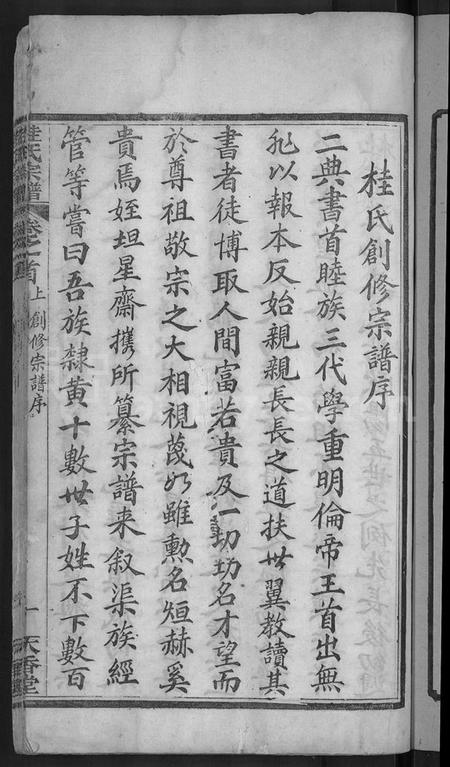 桂氏創修宗譜序
二典書首睦族三代學重明倫帝王首出無
非以報本反始親親長長之道扶世翼教讀其
書者徒博取人間富若貴及一切功名才望而
於尊祖敬宗之大相視蔑如雖勲名烜赫奚
貴焉姪坦星齋攜所纂宗譜来叙渠族經
管等嘗曰吾族隸黄十數世子姓不下數百
桂氏宗譜
卷之首
上創修宗譜序
一
天香堂